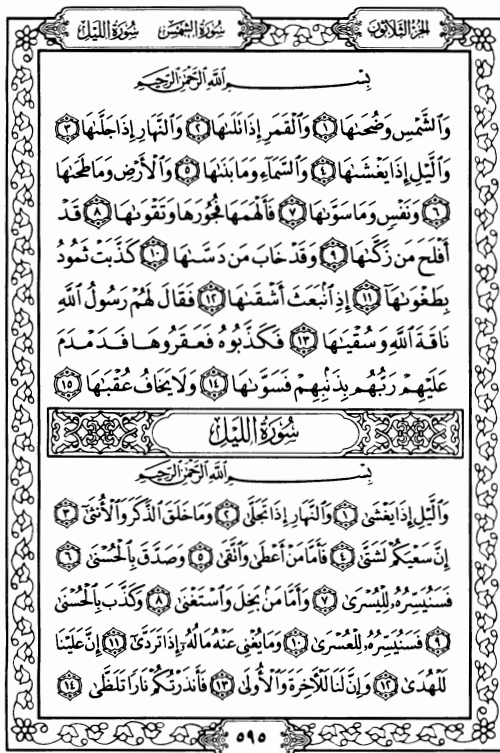 سُورَةُ اللَّيْلِ سُورَةُ الشَّمْسِ الجُزْءُ الثَّلَاثُونَ
بِسْمِ اللَّهِ الرَّحْمَٰنِ الرَّحِيمِ
وَالشَّمْسِ وَضُحَىٰهَا ١ وَالْقَمَرِ إِذَا تَلَىٰهَا ٢ وَالنَّهَارِ إِذَا جَلَّىٰهَا ٣
وَالَّيْلِ إِذَا يَغْشَىٰهَا ٤ وَالسَّمَآءِ وَمَا بَنَىٰهَا ٥ وَالْأَرْضِ وَمَا طَحَىٰهَا
٦ وَنَفْسٍ وَمَا سَوَّىٰهَا ٧ فَأَلْهَمَهَا فُجُورَهَا وَتَقْوَىٰهَا ٨ قَدْ
أَفْلَحَ مَن زَكَّىٰهَا ٩ وَقَدْ خَابَ مَن دَسَّىٰهَا ١٠ كَذَّبَتْ ثَمُودُ
بِطَغْوَىٰهَآ ١١ إِذِ انۢبَعَثَ أَشْقَىٰهَا ١٢ فَقَالَ لَهُمْ رَسُولُ اللَّهِ
نَاقَةَ اللَّهِ وَسُقْيَٰهَا ١٣ فَكَذَّبُوهُ فَعَقَرُوهَا فَدَمْدَمَ
عَلَيْهِمْ رَبُّهُم بِذَنۢبِهِمْ فَسَوَّىٰهَا ١٤ وَلَا يَخَافُ عُقْبَٰهَا ١٥
سُورَةُ اللَّيْلِ
بِسْمِ اللَّهِ الرَّحْمَٰنِ الرَّحِيمِ
وَالَّيْلِ إِذَا يَغْشَىٰ ١ وَالنَّهَارِ إِذَا تَجَلَّىٰ ٢ وَمَا خَلَقَ الذَّكَرَ وَالْأُنثَىٰٓ ٣
إِنَّ سَعْيَكُمْ لَشَتَّىٰ ٤ فَأَمَّا مَنْ أَعْطَىٰ وَاتَّقَىٰ ٥ وَصَدَّقَ بِالْحُسْنَىٰ ٦
فَسَنُيَسِّرُهُۥ لِلْيُسْرَىٰ ٧ وَأَمَّا مَنۢ بَخِلَ وَاسْتَغْنَىٰ ٨ وَكَذَّبَ بِالْحُسْنَىٰ
٩ فَسَنُيَسِّرُهُۥ لِلْعُسْرَىٰ ١٠ وَمَا يُغْنِى عَنْهُ مَالُهُۥٓ إِذَا تَرَدَّىٰٓ ١١ إِنَّ عَلَيْنَا
لَلْهُدَىٰ ١٢ وَإِنَّ لَنَا لَلْءَاخِرَةَ وَالْأُولَىٰ ١٣ فَأَنذَرْتُكُمْ نَارًا تَلَظَّىٰ ١٤
٥٩٥